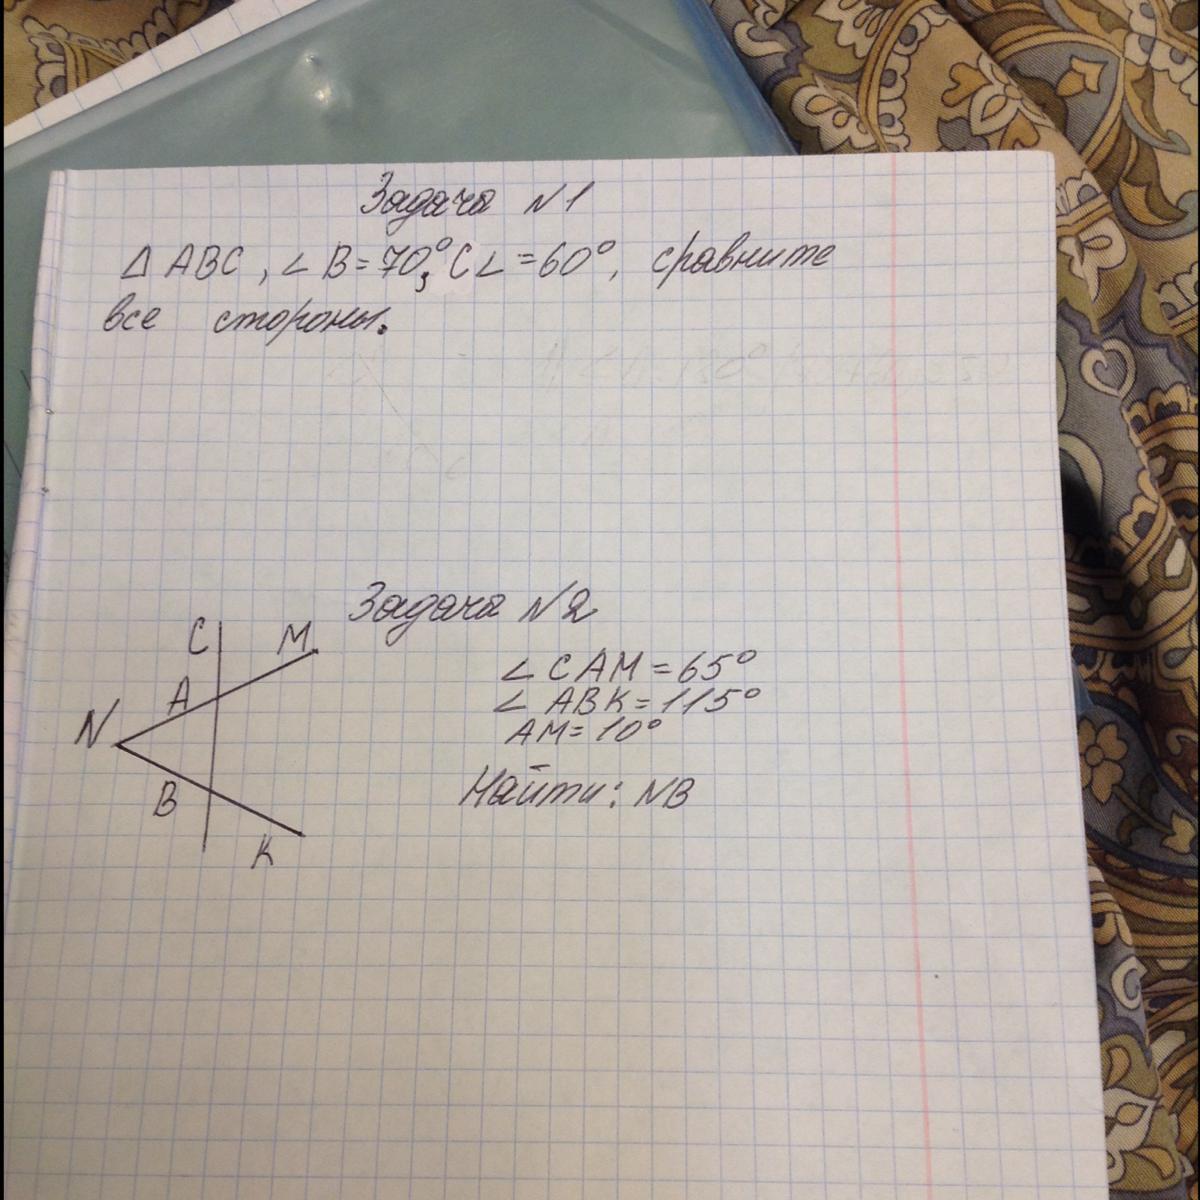 Задача N1
Δ ABC, ∠ B = 70°, C∠ = 60°, сравните
все стороны.
Задача N2
C M
A
N
B
K
∠ CAM = 65°
∠ ABK = 115°
AM = 10°
Найти: NB